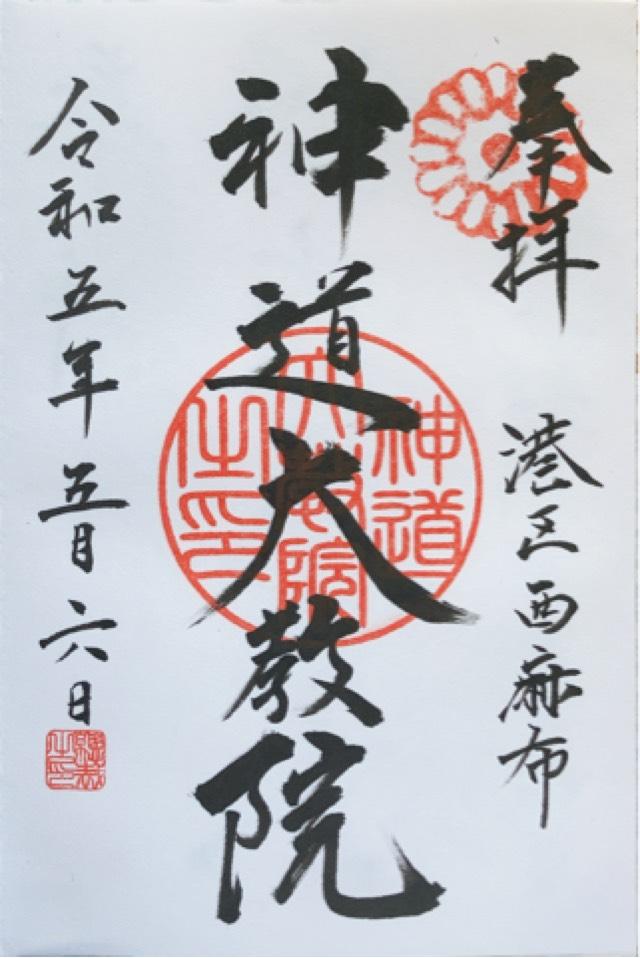 奉拝
港区西麻布
神道大教院
神道大教院之印
令和五年五月六日